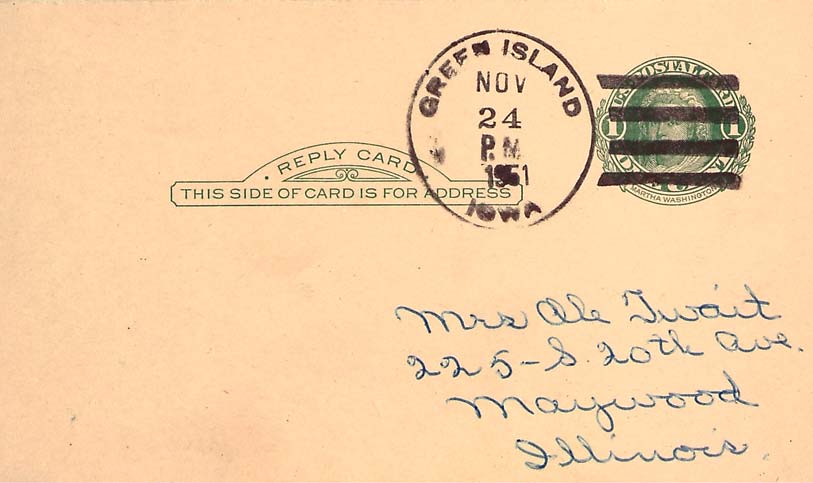 GREEN ISLAND
NOV
24
P.M.
1951
IOWA
U.S. POSTAL CARD
1 1
MARTHA WASHINGTON
REPLY CARD
THIS SIDE OF CARD IS FOR ADDRESS
Mrs Ole Twait
225-S. 20th Ave.
Maywood
Illinois.